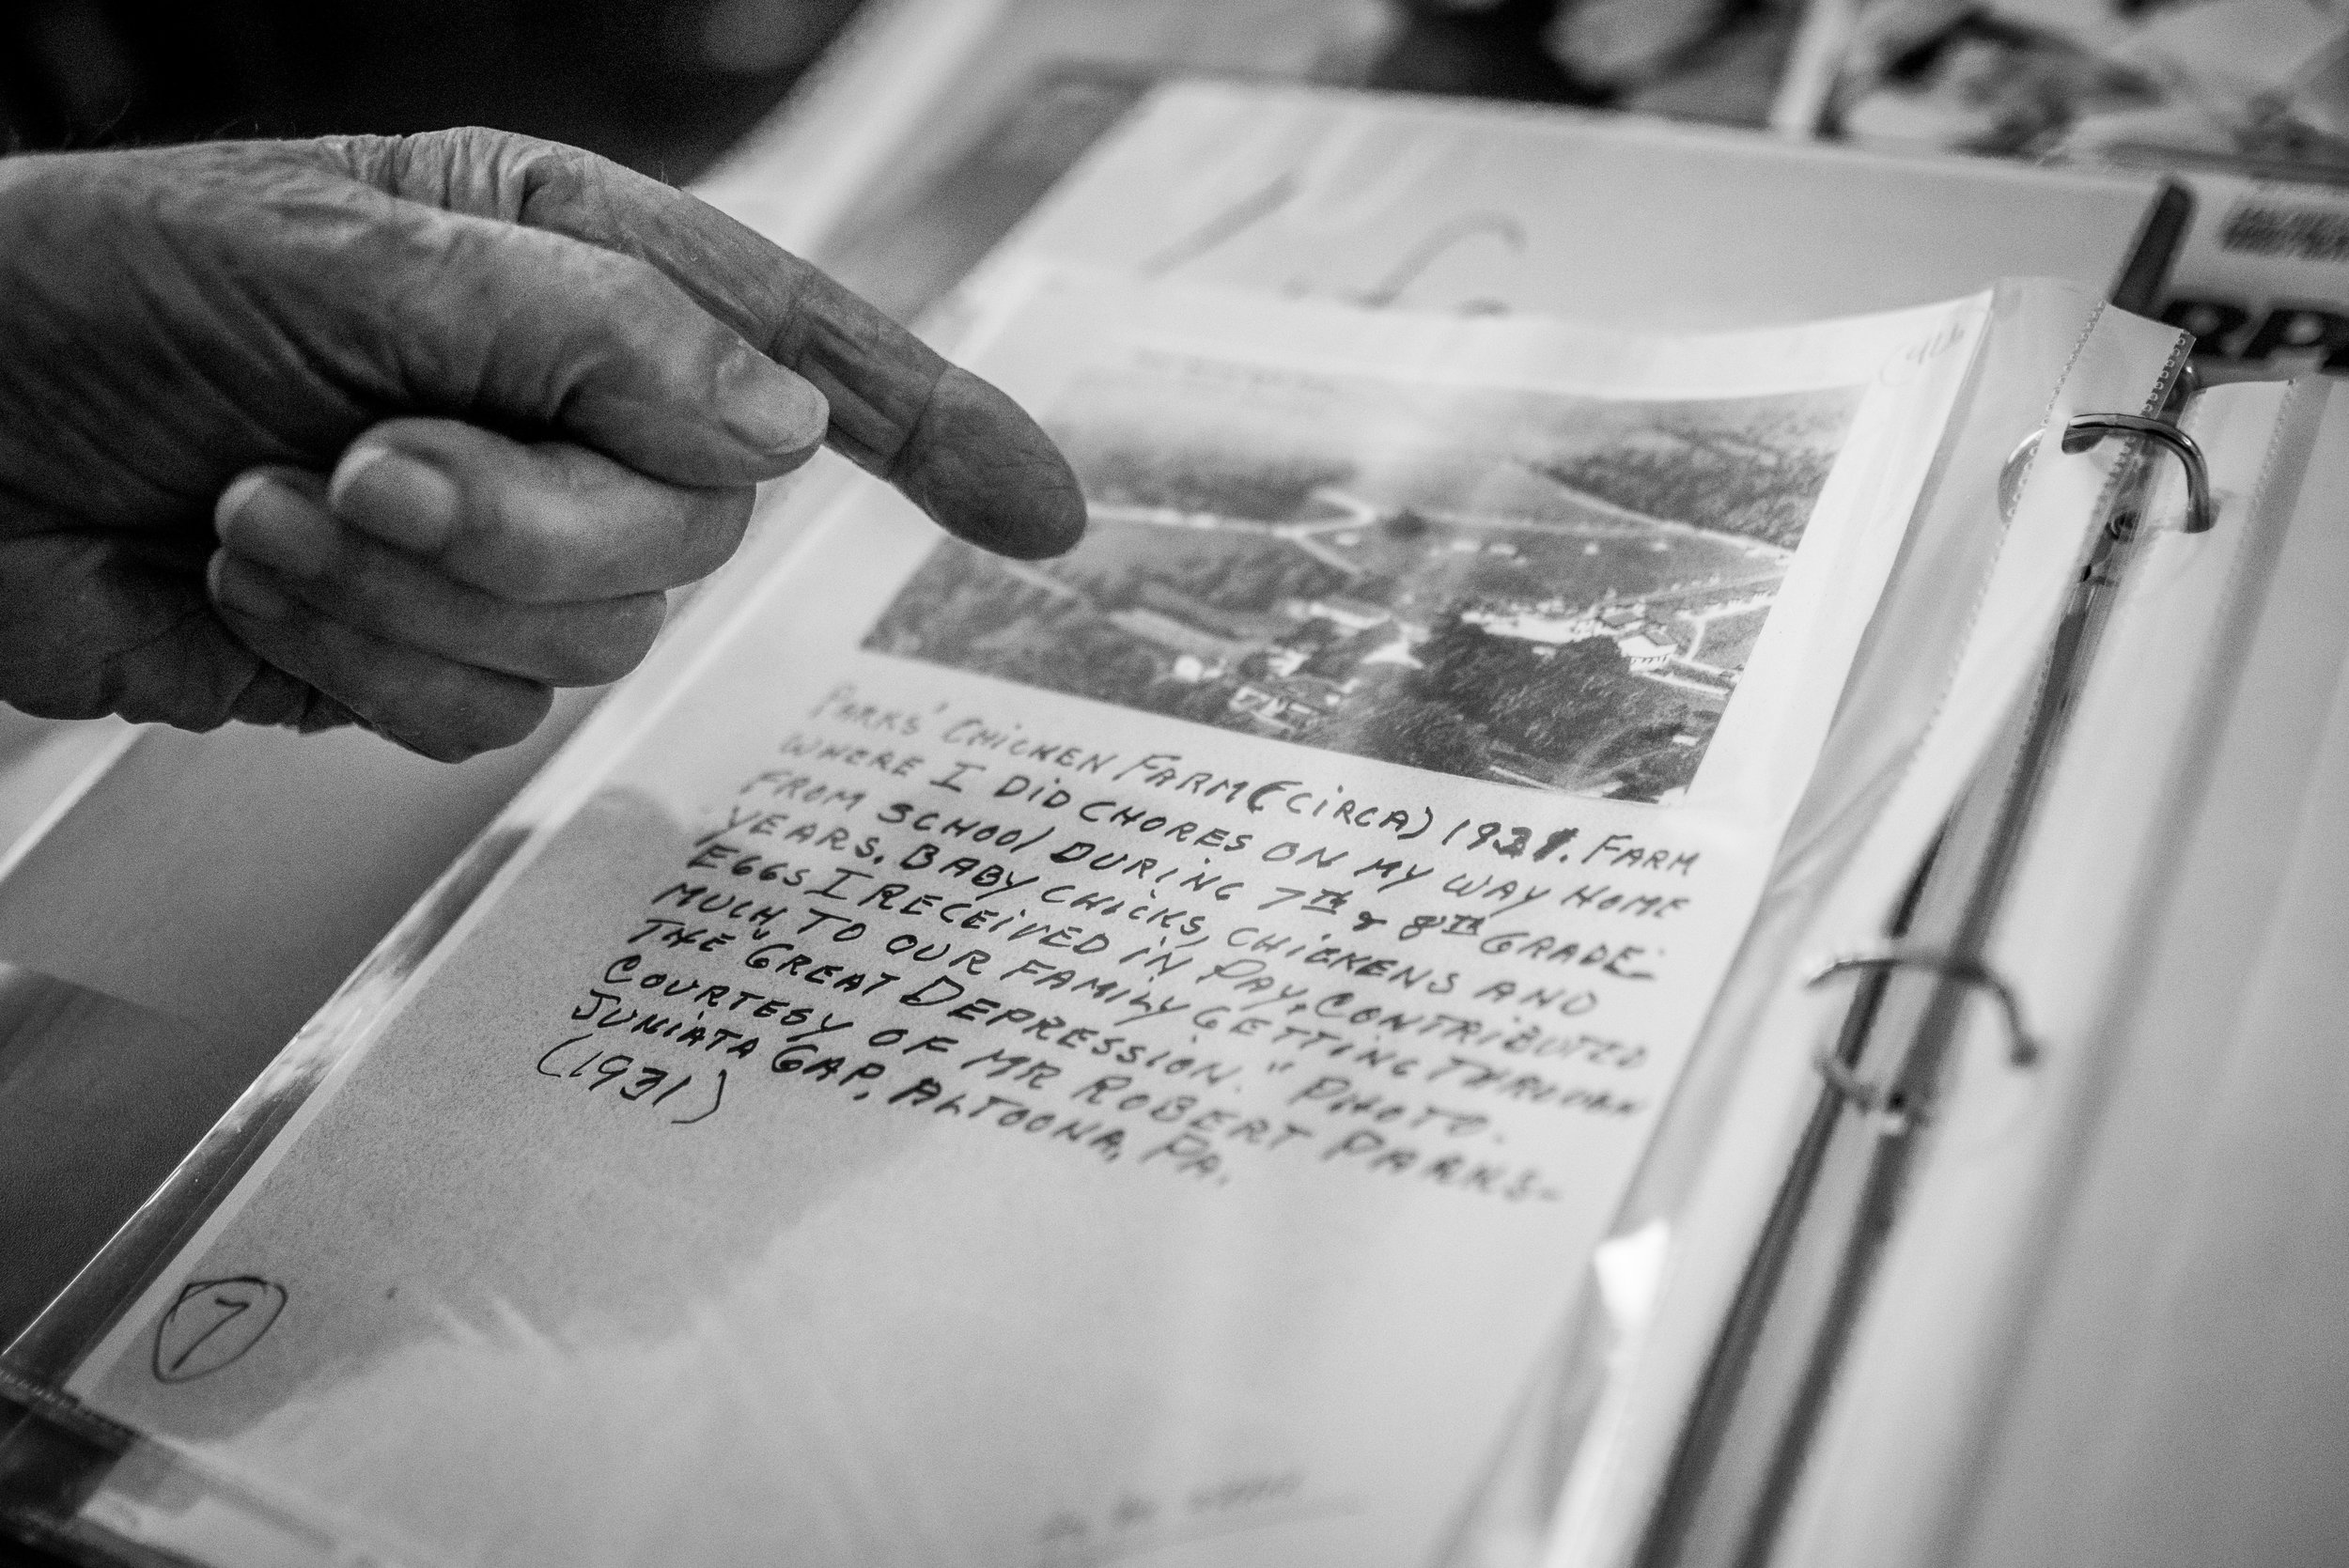 PARKS' CHICKEN FARM (CIRCA) 1931. FARM
WHERE I DID CHORES ON MY WAY HOME
FROM SCHOOL DURING 7TH & 8TH GRADE-
YEARS. BABY CHICKS, CHICKENS AND
EGGS I RECEIVED IN PAY, CONTRIBUTED
MUCH TO OUR FAMILY GETTING THROUGH
THE "GREAT DEPRESSION." PHOTO.
COURTESY OF MR ROBERT PARKS-
JUNIATA GAP, ALTOONA, PA.
(1931)
7